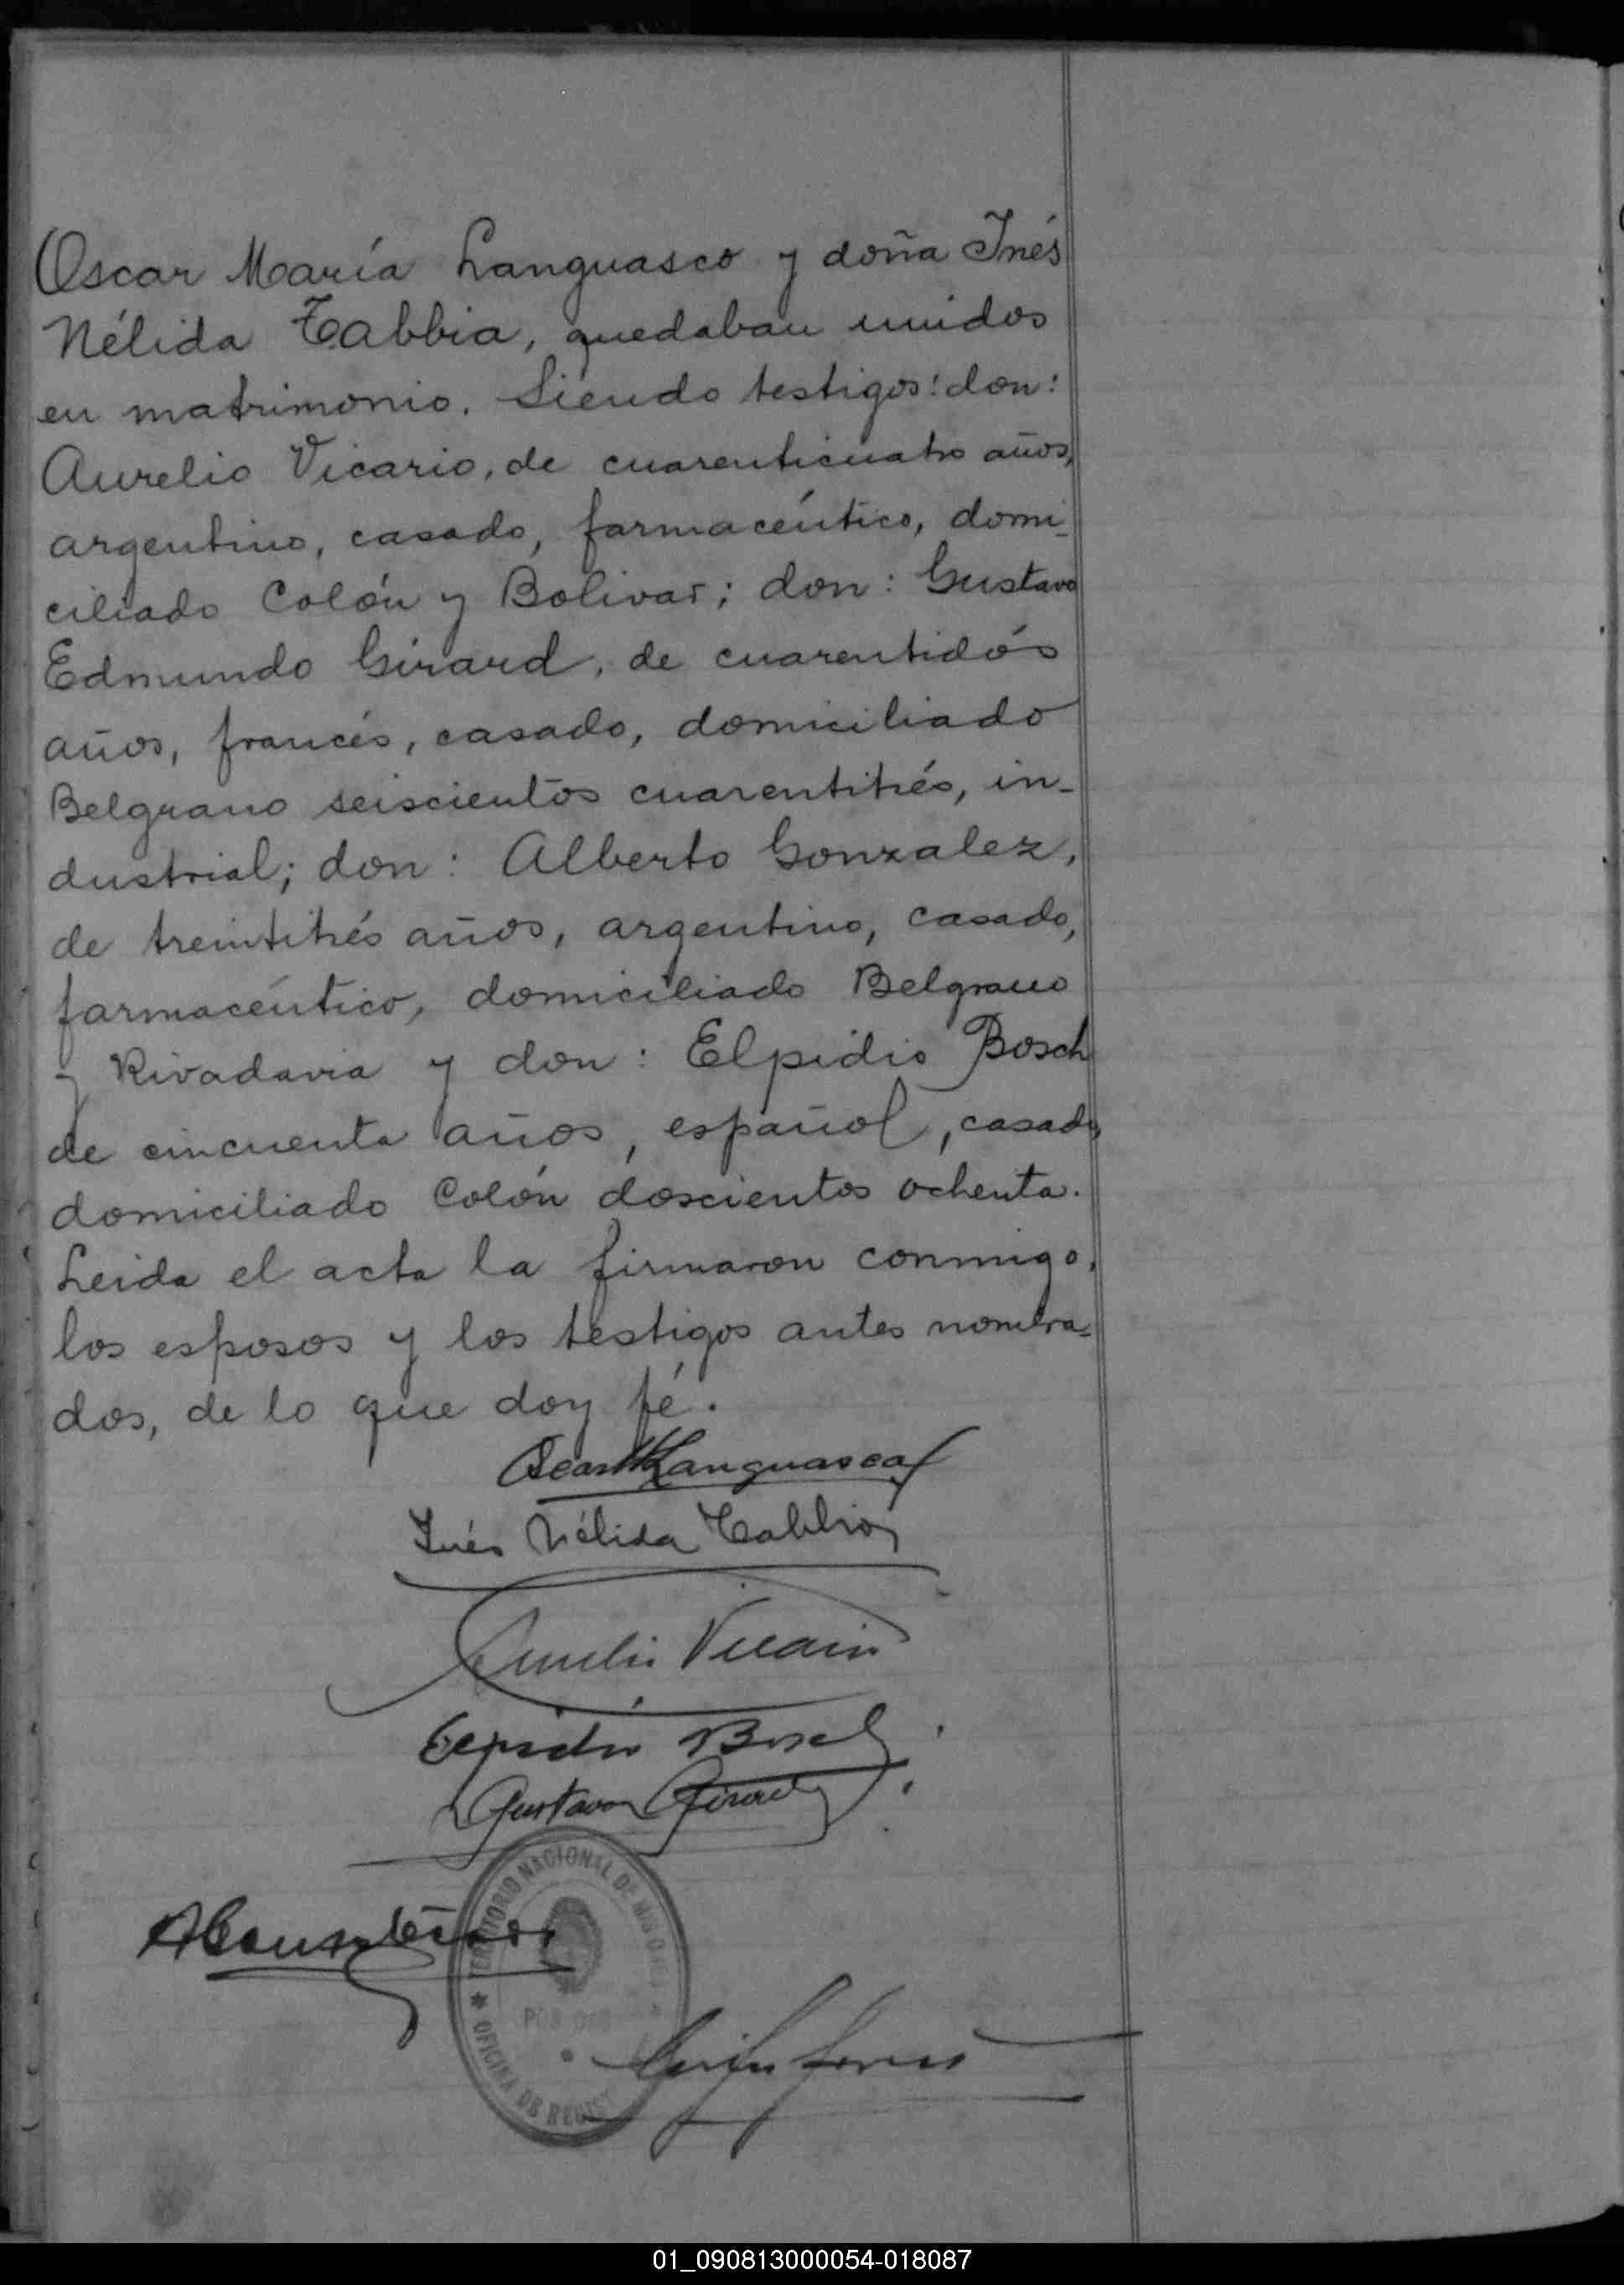 Oscar María Languasco y doña Inés
Nélida Tabbia, quedaban unidos
en matrimonio. Siendo testigos: don:
Aurelio Vicario, de cuarenticuatro años,
argentino, casado, farmacéutico, domi-
ciliado Colón y Bolivar; don: Gustavo
Edmundo Girard, de cuarentidós
años, francés, casado, domiciliado
Belgrano seiscientos cuarentitrés, in-
dustrial; don: Alberto Gonzalez,
de treintitrés años, argentino, casado,
farmacéutico, domiciliado Belgrano
y Rivadavia y don: Elpidio Bosch
de cincuenta años, español, casado,
domiciliado Colón doscientos ochenta.
Leida el acta la firmaron conmigo,
los esposos y los testigos antes nombra-
dos, de lo que doy fé.
Oscar M Languasco
Inés Nélida Tabbia
Aurelio Vicario
Elpidio Bosch
Gustavo Girard
TERRITORIO NACIONAL DE MISIONES
OFICINA DE
01_090813000054-018087